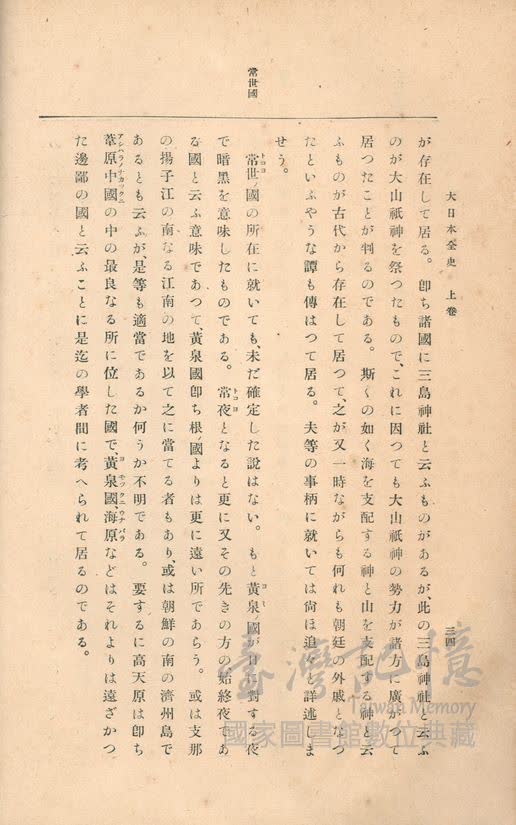 大日本全史　上卷
三四
常世國
が存在して居る。卽ち諸國に三島神社と云ふものがあるが、此の三島神社と云ふ
のが大山祇神を祭つたもので、これに因つても大山祇神の勢力が諸方に廣がつて
居つたことが判るのである。斯くの如く海を支配する神と山を支配する神と云
ふものが古代から存在して居つて、之が又一時ながらも何れも朝廷の外戚となつ
たといふやうな譚も傳はつて居る。夫等の事柄に就いては尙ほ追々と詳述しま
せう。
常世國の所在に就いても、未だ確定した說はない。もと黃泉國が日に對する夜
で暗黑を意味したものである。常夜となると更に又その先きの方の始終夜であ
る國と云ふ意味であつて、黃泉國卽ち根ノ國よりは更に遠い所であらう。或は支那
の揚子江の南なる江南の地を以て之に當てる者もあり、或は朝鮮の南の濟州島で
あるとも云ふが、是等も適當であるか何うか不明である。要するに高天原は卽ち
葦原中國の中の最良なる所に位した國で、黃泉國、海原などはそれよりは遠ざかつ
た邊鄙の國と云ふことに是迄の學者間に考へられて居るのである。
臺灣記憶
Taiwan Memory
國家圖書館數位典藏